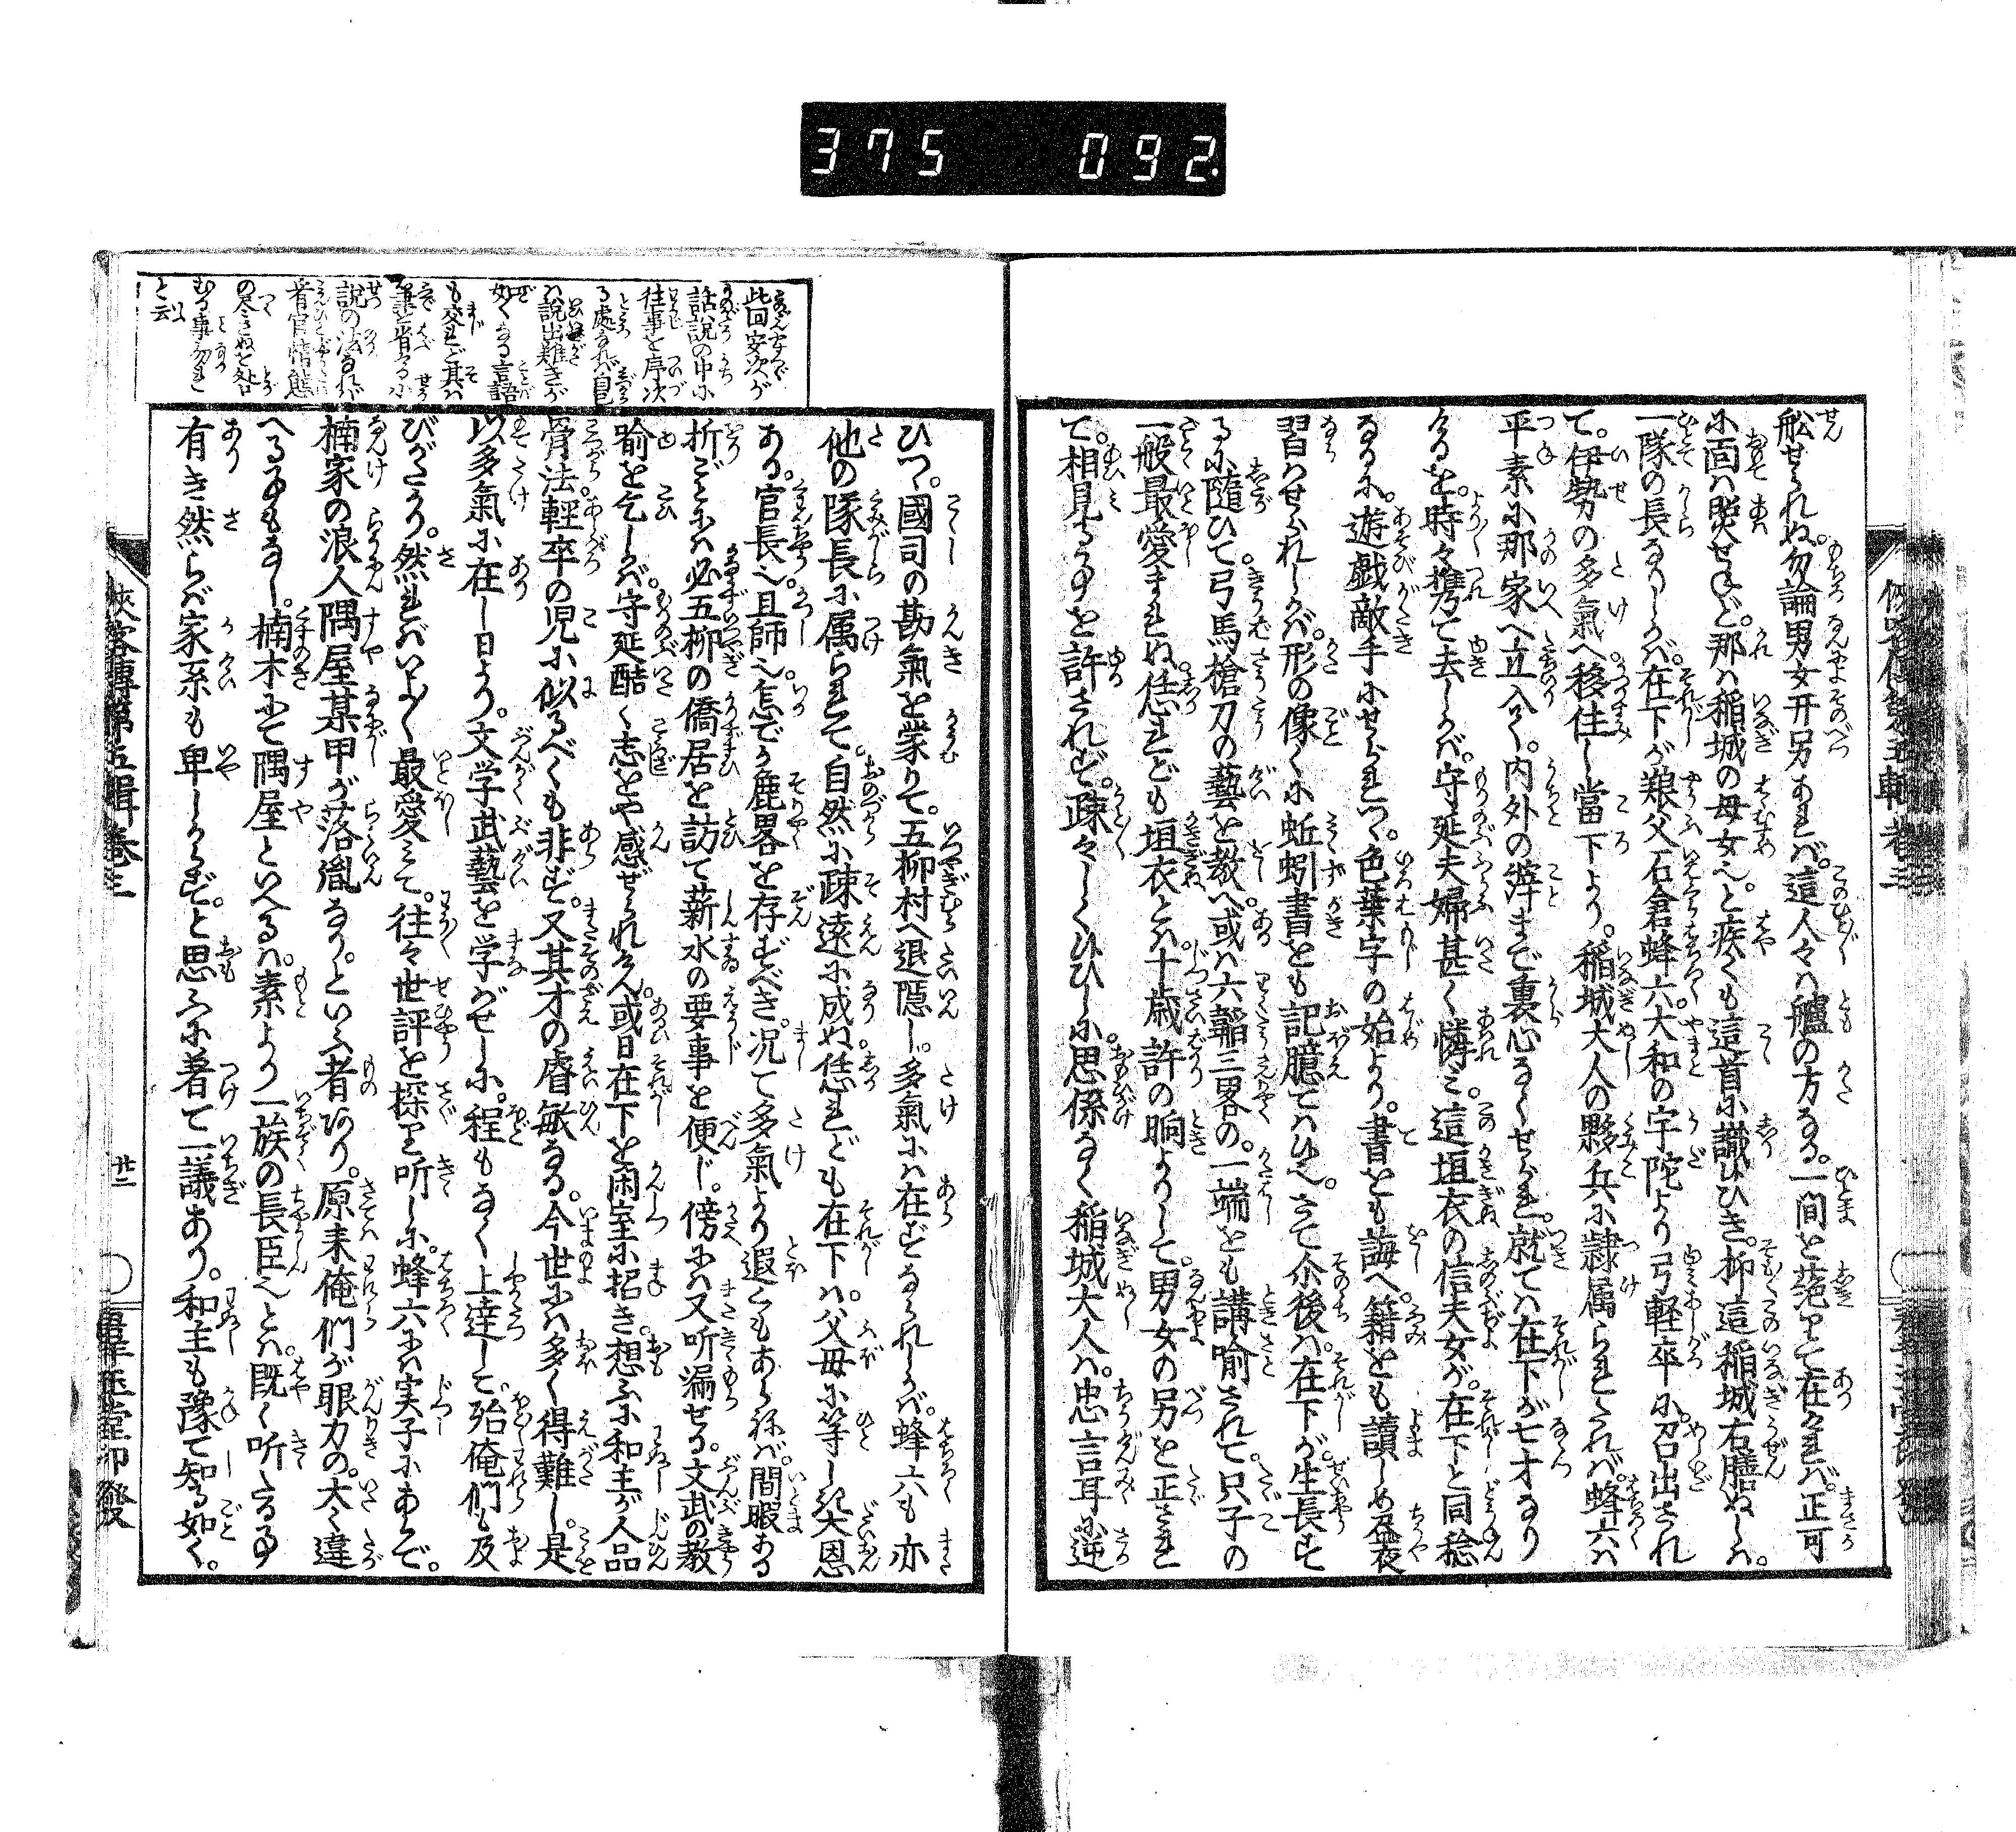 375 092.
舩せられぬ。勿論男女幵另あれば。這人々は艫の方なる。一間を苑て在なれば。正可
に面は熙せねど。那は稲城の母女也。と疾くも這首に識ひき。抑這稲城右膳ぬしは。
一隊の長なりしが。在下が粮父石倉蜂六。大和の宇陀より弓軽卒に召出され
て。伊勢の多氣へ移住し當下より。稲城大人の夥兵に隷属られたれば。蜂六は
平素に那家へ立入て。内外の滓まで裏心なくせられ。就ては在下が七才なり
けるを。時々携て去しかば。守延夫婦甚く憐み。這垣衣の信夫女が。在下と同稔
なるに。遊戯敵手にせられつ。色葉字の始より。書をも誨へ。籍をも讀しめ。昼夜
習はせられしかば。形の像くに蚯蚓書をも記臆てはひへ。さて尒後は。在下が。生長す
るに隨ひて。弓馬槍刀の藝を教へ。或は六韜三畧の。一端をも講喩されて。只子の
一般最愛まれぬ。恁れども垣衣とは。十歳許の晌よりして。男女の另を正され
て。相見る事を許されず。疎々しくひひしに。思係なく稲城大人は。忠言耳に逆
ひつ。國司の勘氣を蒙りて。五柳村へ退隱し。多氣には在ずなられしかば。蜂六も亦
他の隊長に属られて。自然に疎遠に成ぬ。恁れども在下は。父母に等しき大恩
ある。官長也。且師也。怎でか鹿畧を存ずべき。况て多氣より遐くもあらねば。間暇ある
折ごとには必五柳の僑居を訪て薪水の要事を便じ。傍には又听漏せる。文武の教
喩を乞しかば。守延酷く志をや感ぜられけん。或日在下を閑室に招き。想ふに和主が人品
骨法。輕卒の児に似るべくも非ず。又其才の睿敏なる。今世には多く得難し。是
以多氣に在し日より。文学武藝を学がせしに。程もなく上達して。殆俺們も及
びがたかり。然ればいよゝ最愛みて。往々世評を探り听しに。蜂六には実子にあらで。
楠家の浪人隅屋某甲が落胤なり。といふ者あり。原来俺們が眼力の。太く違
へる事もなし。楠木にて隅屋といへるは。素より一族の長臣也とは。既く听たる事
有き然らば家系も卑しからず。と思ふに著て一議あり。和主も豫て知る如く。
此回安次が
話説の中に
往事を序次
る處なれば自
は説出難きが
如くなる言語
も交れど其は
筆を省くる小
説の法なれば
看官情態
の尽さぬを咎
むる事勿れ
と云
侠客傳第五輯巻三
廿二
群玉堂印發